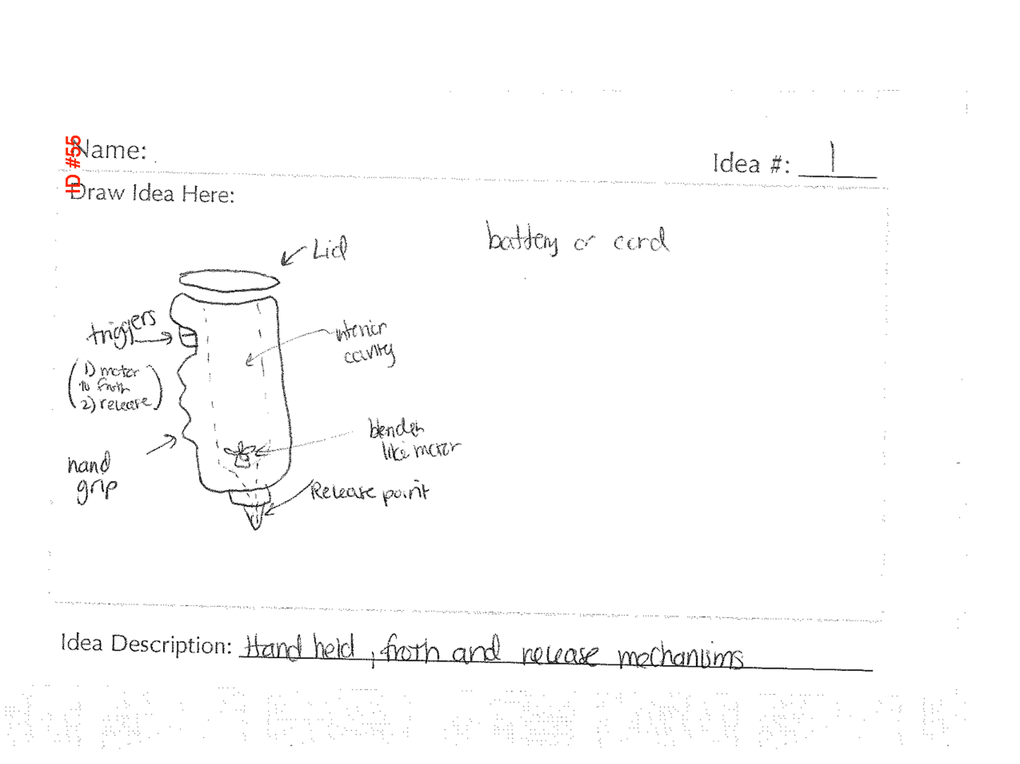 ID #55
Name:
Idea #: 1
Draw Idea Here:
battery or cord
Lid
triggers
1) motor
to froth
2) release
interior
cavity
blender
like motor
hand
grip
Release point
Idea Description: Hand held, froth and release mechanisms